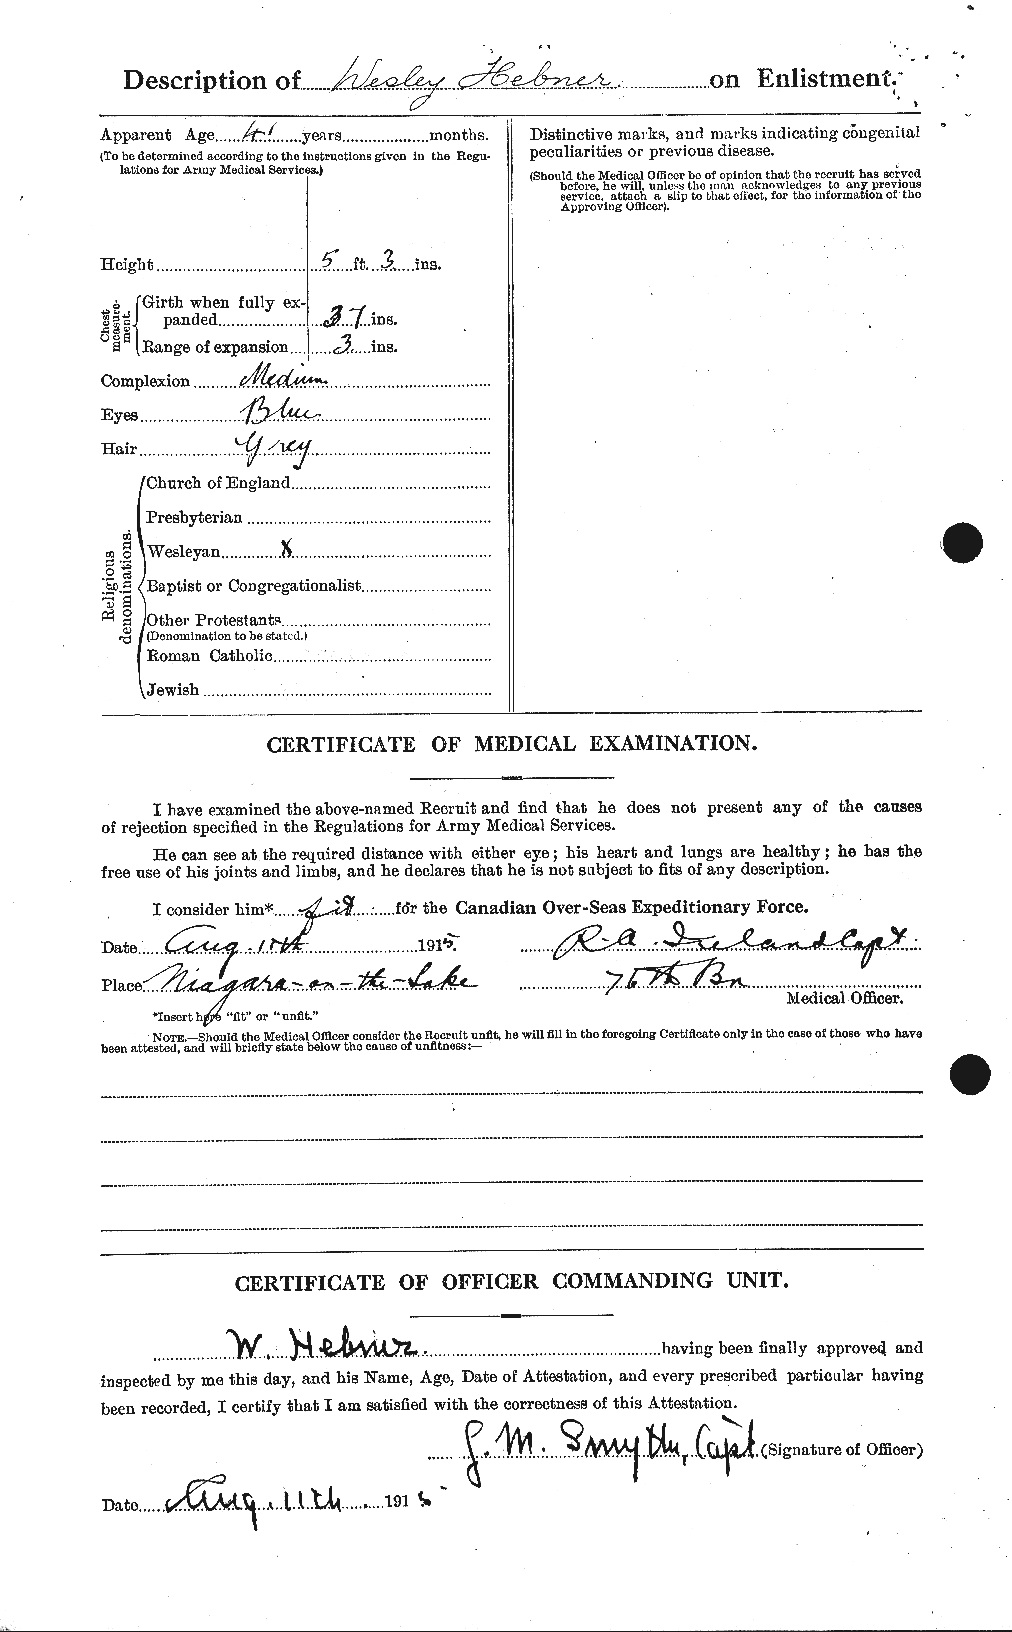 Description of Wesley Hebner on Enlistment.
Apparent Age 41 years months.
(To be determined according to the instructions given in the Regu-
lations for Army Medical Services.)
Height 5 ft. 3 ins.
Chest measure-ment.
Girth when fully ex-
panded 37 ins.
Range of expansion 3 ins.
Complexion Medium
Eyes Blue
Hair Grey
Religious denominations.
Church of England
Presbyterian
Wesleyan X
Baptist or Congregationalist
Other Protestants
(Denomination to be stated.)
Roman Catholic
Jewish
Distinctive marks, and marks indicating congenital
peculiarities or previous disease.
(Should the Medical Officer be of opinion that the recruit has served
before, he will, unless the man acknowledges to any previous
service, attach a slip to that effect, for the information of the
Approving Officer).
CERTIFICATE OF MEDICAL EXAMINATION.
I have examined the above-named Recruit and find that he does not present any of the causes
of rejection specified in the Regulations for Army Medical Services.
He can see at the required distance with either eye; his heart and lungs are healthy; he has the
free use of his joints and limbs, and he declares that he is not subject to fits of any description.
I consider him* fit for the Canadian Over-Seas Expeditionary Force.
Date Aug 1915. R-A. Ireland Capt.
Place Niagara-on-the-Lake 76th Bn
Medical Officer.
*Insert here "fit" or "unfit."
NOTE.—Should the Medical Officer consider the Recruit unfit, he will fill in the foregoing Certificate only in the case of those who have
been attested, and will briefly state below the cause of unfitness:—
CERTIFICATE OF OFFICER COMMANDING UNIT.
W. Hebner. having been finally approved and
inspected by me this day, and his Name, Age, Date of Attestation, and every prescribed particular having
been recorded, I certify that I am satisfied with the correctness of this Attestation.
J. M. Smyth, Capt. (Signature of Officer)
Date Aug. 11th 1915